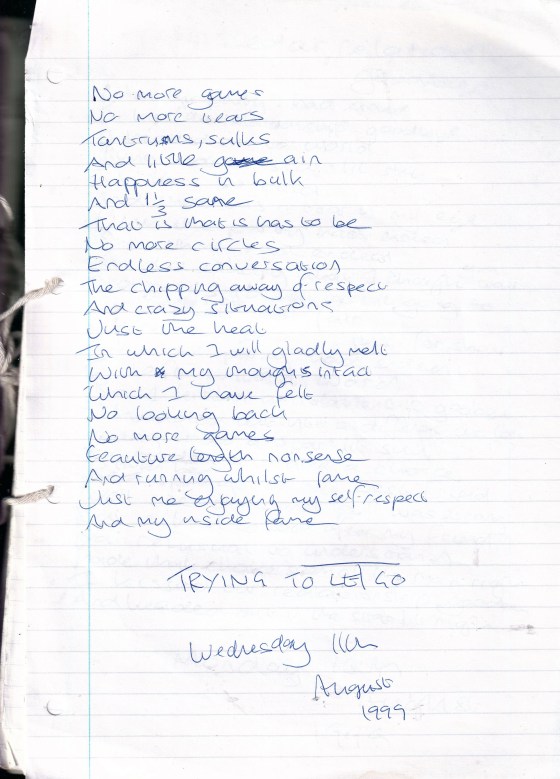 No more games
No more tears
Tantrums, sulks
And little game air
Happness in bulk
And 1 1/3 same
That is what is has to be
No more circles
Endless conversation
The chipping away of respect
And crazy situations
Just the heat
In which I will gladly melt
With my thoughs intact
Which I have felt
No looking back
No more games
Feauture length nonsense
And running whilst lame
Just me enjoying my self-respect
And my inside fame
TRYING TO LET GO
Wednesday 11th
August
1999